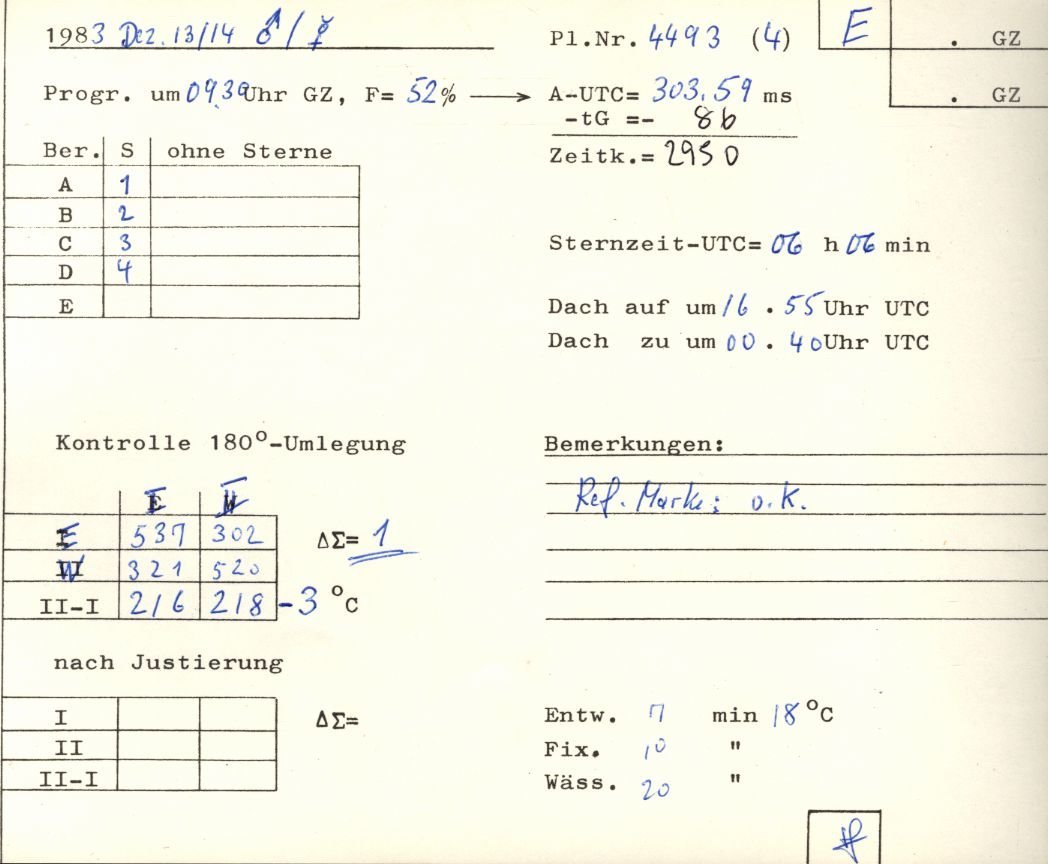 1983 Dez. 13/14 ♂/☿
Pl.Nr. 4493 (4) E . GZ
Progr. um 0930 Uhr GZ, F= 52% → A-UTC= 303,59 ms . GZ
-tG =- 86
Zeitk.= 2950
Ber. S ohne Sterne
A 1
B 2
C 3
D 4
E
Sternzeit-UTC= 06 h 06 min
Dach auf um 16 . 55 Uhr UTC
Dach zu um 00 . 40 Uhr UTC
Kontrolle 180°-Umlegung
Bemerkungen:
Ref. Marke: o.K.
E W
E 537 302 ΔΣ= 1
W 321 520
II-I 216 218 -3 °C
nach Justierung
I ΔΣ=
II
II-I
Entw. 7 min 18 °C
Fix. 10 "
Wäss. 20 "